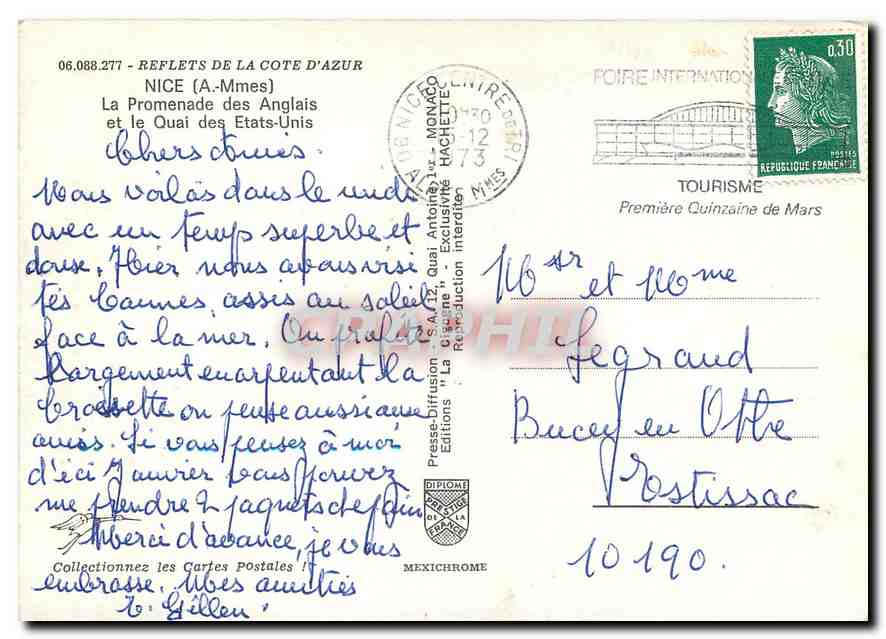 06.088.277 - REFLETS DE LA COTE D'AZUR
NICE (A.-Mmes)
La Promenade des Anglais
et le Quai des Etats-Unis
Chers Amis.
Nous voilàs dans le midi
avec un temps superbe et
douse. Hier nous avons visi
tés Cannes, assis au soleil
face à la mer. On profite
largement en arpentant la
Croisette on pense aussi aux
amis. Si vous pensez à moi
d'ici Janvier vous pouvez
me prendre 2 paquets de pain
Merci d'avance, je vous
embrasse. Mes amitiés
Collectionnez les Cartes Postales !
Presse-Diffusion - S.A. 12, Quai Antoine 1er - MONACO
Editions "La Cigogne" - Exclusivité HACHETTE
Reproduction interdite
DIPLOME
PRESTIGE
DE LA
FRANCE
MEXICHROME
NICE CENTRE DE TRI
-12
1973
A. MMES
FOIRE INTERNATION
TOURISME
Première Quinzaine de Mars
0,30
POSTES
REPUBLIQUE FRANÇAISE
Msr et Mme
Legrand
Bucey en Othe
Estissac
10190.
CPAPHIL